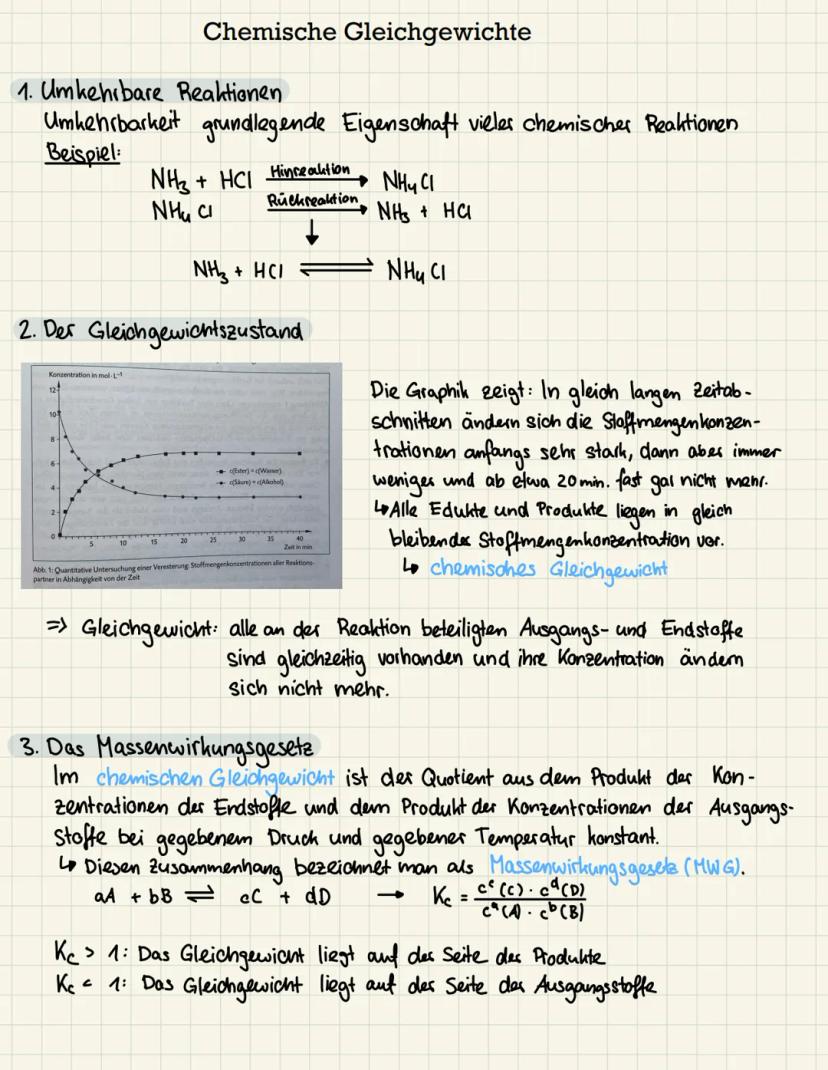 Chemische Gleichgewichte
1. Umkehrbare Reaktionen
Umkehrbarkeit grundlegende Eigenschaft vieler chemischer Reaktionen
Beispiel:
NH₃ + HCl Hinreaktion → NH₄Cl
NH₄Cl Rückreaktion → NH₃ + HCl
↓
NH₃ + HCl ⇌ NH₄Cl
2. Der Gleichgewichtszustand
Konzentration in mol·L⁻¹
12
10
8
6
4
2
0
c(Ester) = c(Wasser)
c(Säure) = c(Alkohol)
5 10 15 20 25 30 35 40
Zeit in min
Abb. 1: Quantitative Untersuchung einer Veresterung: Stoffmengenkonzentrationen aller Reaktions-
partner in Abhängigkeit von der Zeit
Die Graphik zeigt: In gleich langen Zeitab-
schnitten ändern sich die Stoffmengenkonzen-
trationen anfangs sehr stark, dann aber immer
weniger und ab etwa 20 min. fast gar nicht mehr.
↳ Alle Edukte und Produkte liegen in gleich
bleibender Stoffmengenkonzentration vor.
↳ chemisches Gleichgewicht
⇒ Gleichgewicht: alle an der Reaktion beteiligten Ausgangs- und Endstoffe
sind gleichzeitig vorhanden und ihre Konzentration ändern
sich nicht mehr.
3. Das Massenwirkungsgesetz
Im chemischen Gleichgewicht ist der Quotient aus dem Produkt der Kon-
zentrationen der Endstoffe und dem Produkt der Konzentrationen der Ausgangs-
stoffe bei gegebenem Druck und gegebener Temperatur konstant.
↳ Diesen Zusammenhang bezeichnet man als Massenwirkungsgesetz (MWG).
aA + bB ⇌ cC + dD → Kc = cᶜ(C) · cᵈ(D) / cᵃ(A) · cᵇ(B)
Kc > 1: Das Gleichgewicht liegt auf der Seite der Produkte
Kc < 1: Das Gleichgewicht liegt auf der Seite der Ausgangsstoffe